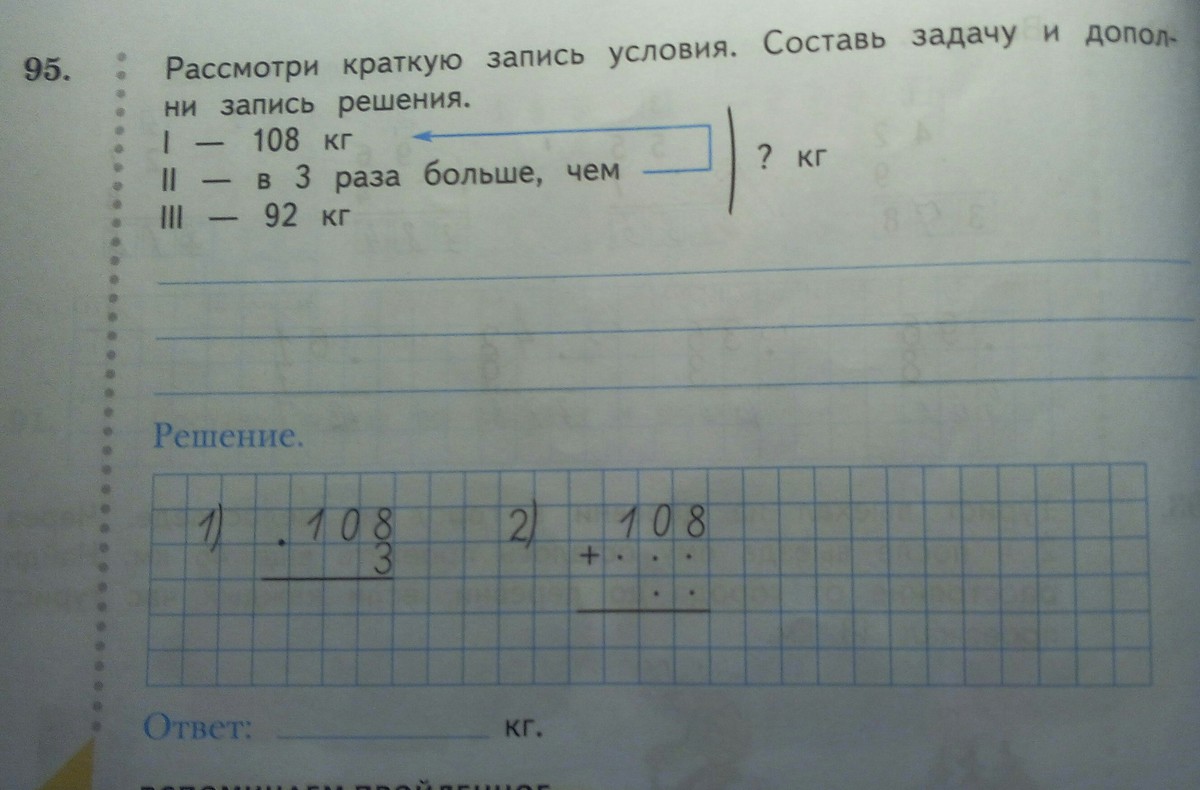 95.
Рассмотри краткую запись условия. Составь задачу и допол-
ни запись решения.
I — 108 кг
II — в 3 раза больше, чем
? кг
III — 92 кг
Решение.
1) . 108 2) 108
3 + . . .
. .
Ответ: ________ кг.
ВСПОМИНАЕМ ПРОЙДЕННОЕ